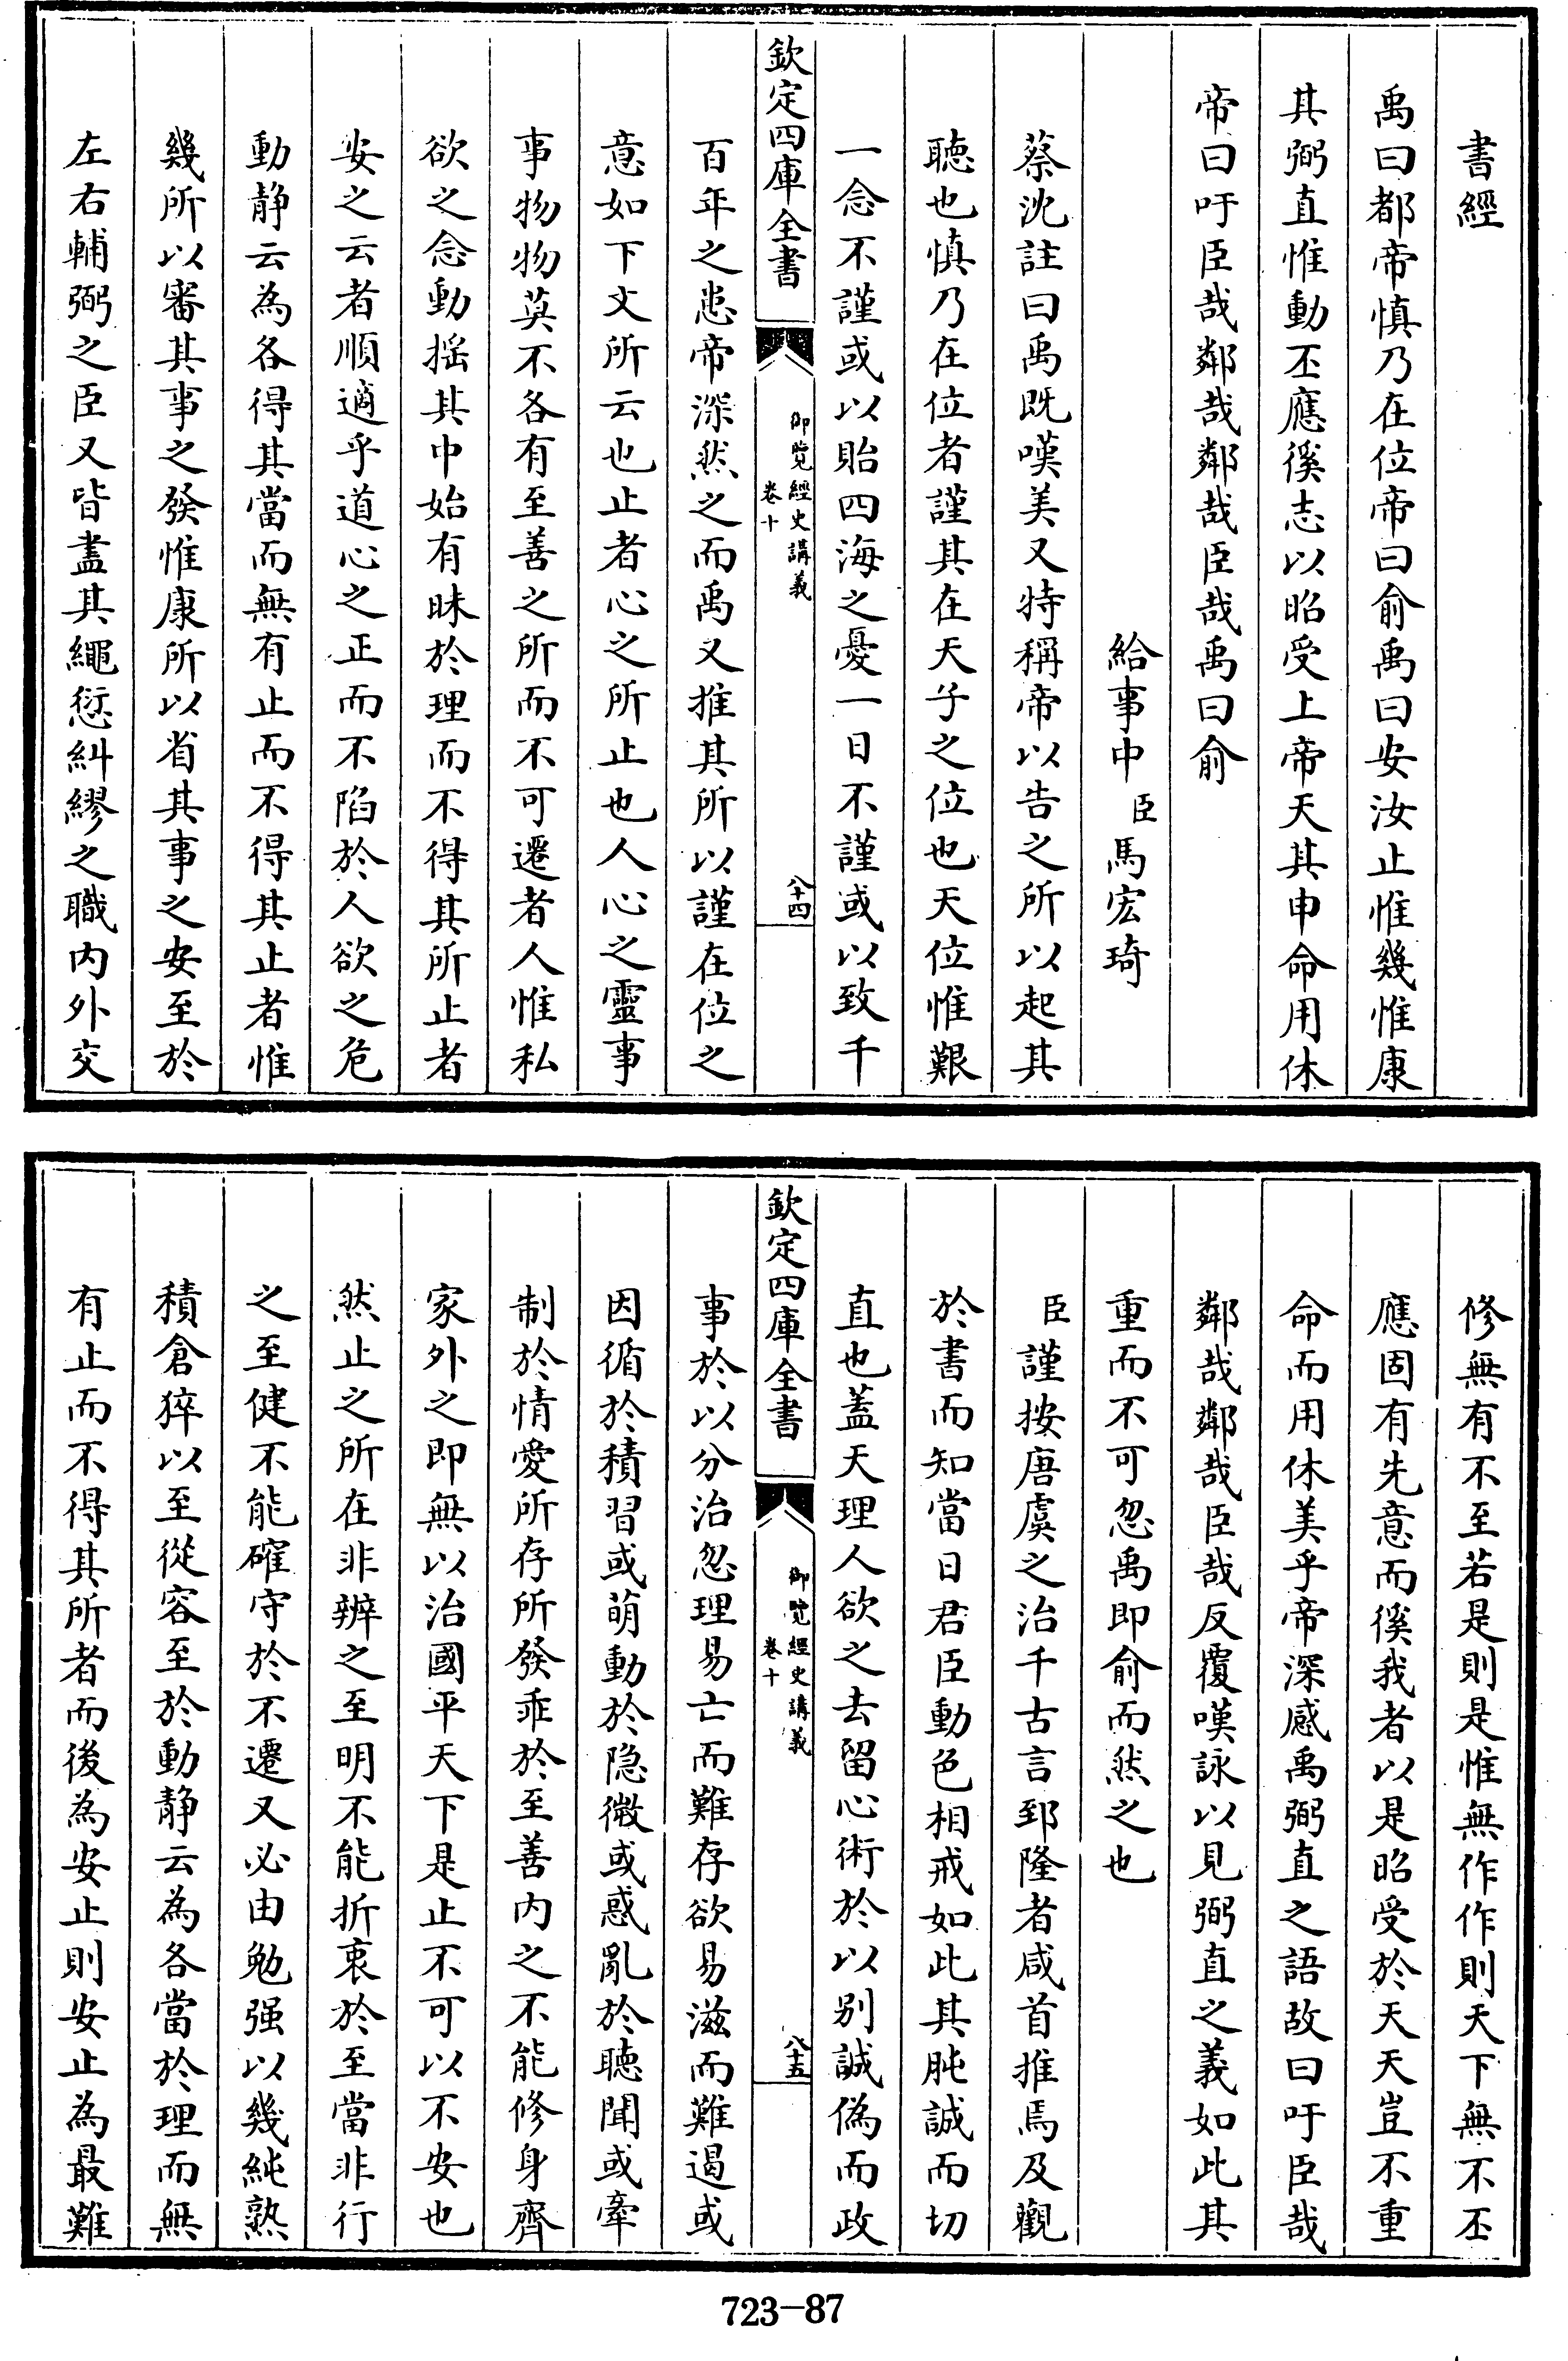 書經
禹曰都帝慎乃在位帝曰俞禹曰安汝止惟幾惟康
其弼直惟動丕應徯志以昭受上帝天其申命用休
帝曰吁臣哉鄰哉鄰哉臣哉禹曰俞
給事中臣馬宏琦
蔡沈註曰禹既嘆美又特稱帝以告之所以起其
聽也慎乃在位者謹其在天子之位也天位惟艱
一念不謹或以貽四海之憂一日不謹或以致千
欽定四庫全書
御覽經史講義
卷十
八十四
百年之患帝深然之而禹又推其所以謹在位之
意如下文所云也止者心之所止也人心之靈事
事物物莫不各有至善之所而不可遷者人惟私
欲之念動揺其中始有昧於理而不得其所止者
安之云者順適乎道心之正而不陷於人欲之危
動静云為各得其當而無有止而不得其止者惟
幾所以審其事之發惟康所以省其事之安至於
左右輔弼之臣又皆盡其繩愆糾繆之職内外交
修無有不至若是則是惟無作作則天下無不丕
應固有先意而徯我者以是昭受於天天豈不重
命而用休美乎帝深感禹弼直之語故曰吁臣哉
鄰哉鄰哉臣哉反覆嘆詠以見弼直之義如此其
重而不可忽禹即俞而然之也
臣謹按唐虞之治千古言郅隆者咸首推焉及觀
於書而知當日君臣動色相戒如此其肫誠而切
直也蓋天理人欲之去留心術於以别誠偽而政
欽定四庫全書
御覽經史講義
卷十
八十五
事於以分治忽理易亡而難存欲易滋而難遏或
因循於積習或萌動於隐微或惑亂於聽聞或牽
制於情愛所存所發乖於至善内之不能修身齊
家外之即無以治國平天下是止不可以不安也
然止之所在非辨之至明不能折衷於至當非行
之至健不能確守於不遷又必由勉强以幾純熟
積倉猝以至從容至於動静云為各當於理而無
有止而不得其所者而後為安止則安止為最難
723-87